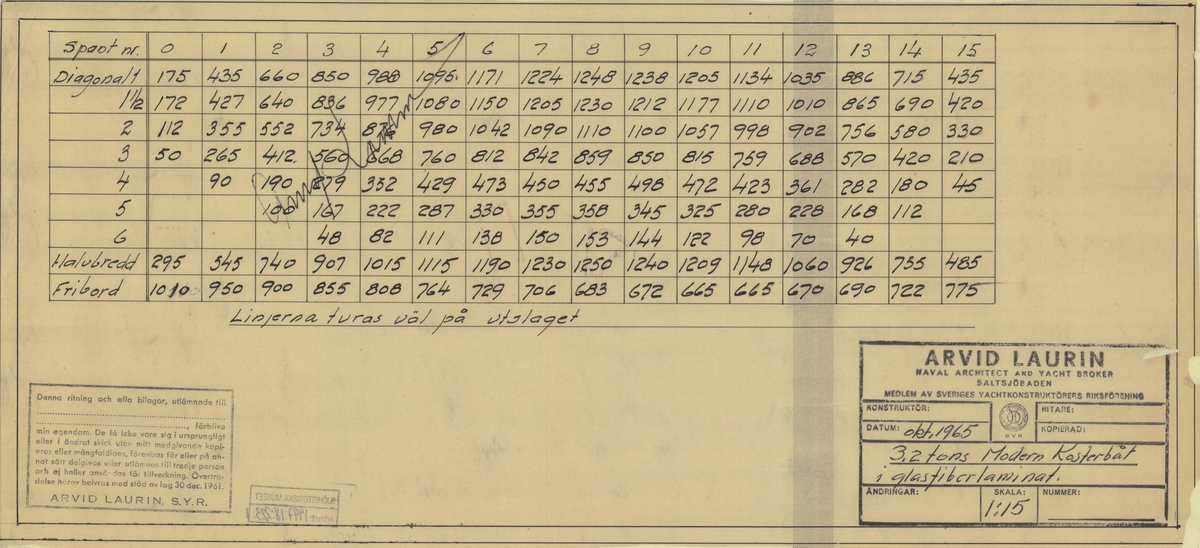 Spant nr. 0 1 2 3 4 5 6 7 8 9 10 11 12 13 14 15
Diagonal 1 175 435 660 850 980 1095 1171 1224 1248 1238 1205 1134 1035 886 715 435
1½ 172 427 640 836 977 1080 1150 1205 1230 1212 1177 1110 1010 865 690 420
2 112 355 552 734 980 1042 1090 1110 1100 1057 998 902 756 580 330
3 50 265 412 560 668 760 812 842 859 850 815 759 688 570 420 210
4 90 190 279 352 429 473 450 455 498 472 423 361 282 180 45
5 100 167 222 287 330 355 358 345 325 280 228 168 112
6 48 82 111 138 150 153 144 122 98 70 40
Halvbredd 295 545 740 907 1015 1115 1190 1230 1250 1240 1209 1148 1060 926 755 485
Fribord 1010 950 900 855 808 764 729 706 683 672 665 665 670 690 722 775
Linjerna turas väl på utslaget
Denna ritning och alla bilagor, utlämnade till
, förbliva
min egendom. De få icke vare sig i ursprungligt
eller i ändrat skick utan mitt medgivande kopi-
eras eller mångfaldigas, förevisas för eller på an-
nat sätt delgivas eller utlämnas till tredje person
och ej heller användas för tillverkning. Överträ-
delse härav beivras med stöd av lag 30 dec. 1961.
ARVID LAURIN. S.Y.R.
SJÖHISTORISKA MUSEET
ARVID LAURIN
NAVAL ARCHITECT AND YACHT BROKER
SALTSJÖBADEN
MEDLEM AV SVERIGES YACHTKONSTRUKTÖRERS RIKSFÖRENING
KONSTRUKTÖR: RITARE:
DATUM: okt, 1965 SYR KOPIERAD:
3,2 tons Modern Kosterbåt
i glasfiberlaminat.
ÄNDRINGAR: SKALA: NUMMER:
1:15